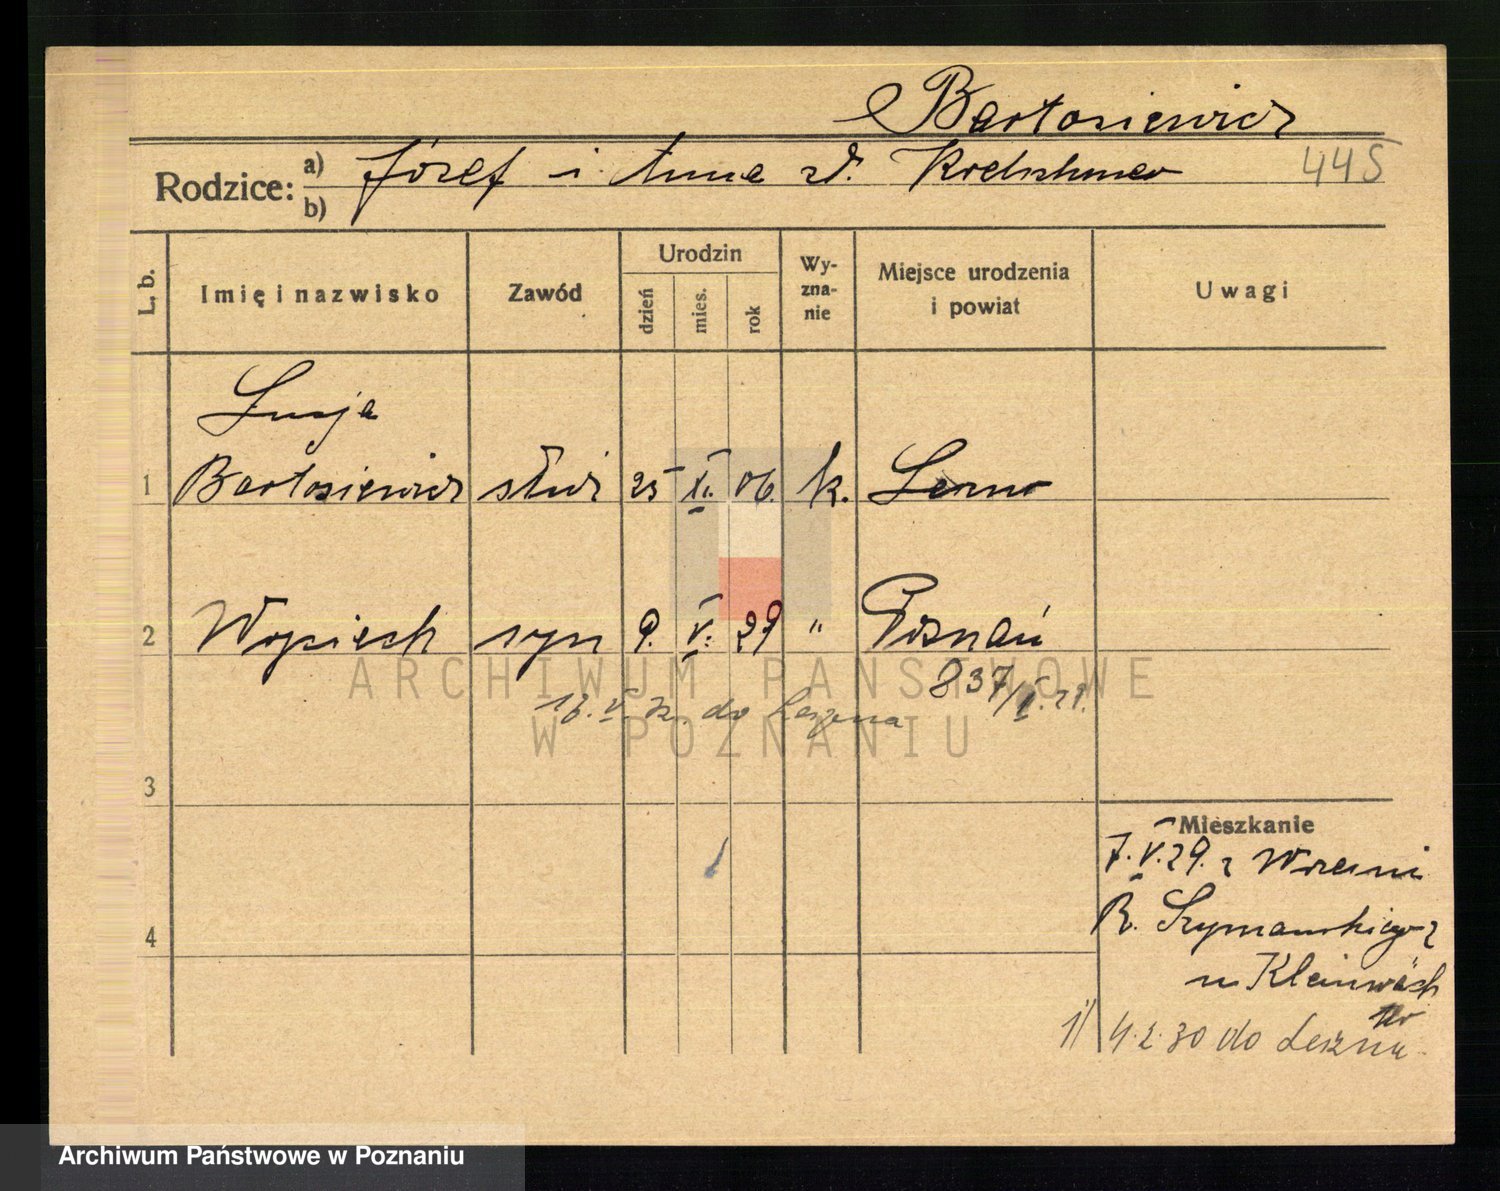 Bartosiewicz
Rodzice: a) Józef i Anna zd. Kretschmer 445
b)
L. b. Imię i nazwisko Zawód Urodzin dzień mies. rok Wy-zna-nie Miejsce urodzenia i powiat Uwagi
Łucja
1 Bartosiewicz służ 25 XI. 06. k. Leszno
2 Wojciech syn 9. V. 29 " Poznań
837/V.29.
V. do Leszna
3
Mieszkanie
7.V.29. z Wrześni
R. Szymańskiego 2
u Kleinwäch
ter
4
1) 4.2.30 do Leszna
ARCHIWUM PAŃSTWOWE
W POZNANIU
Archiwum Państwowe w Poznaniu